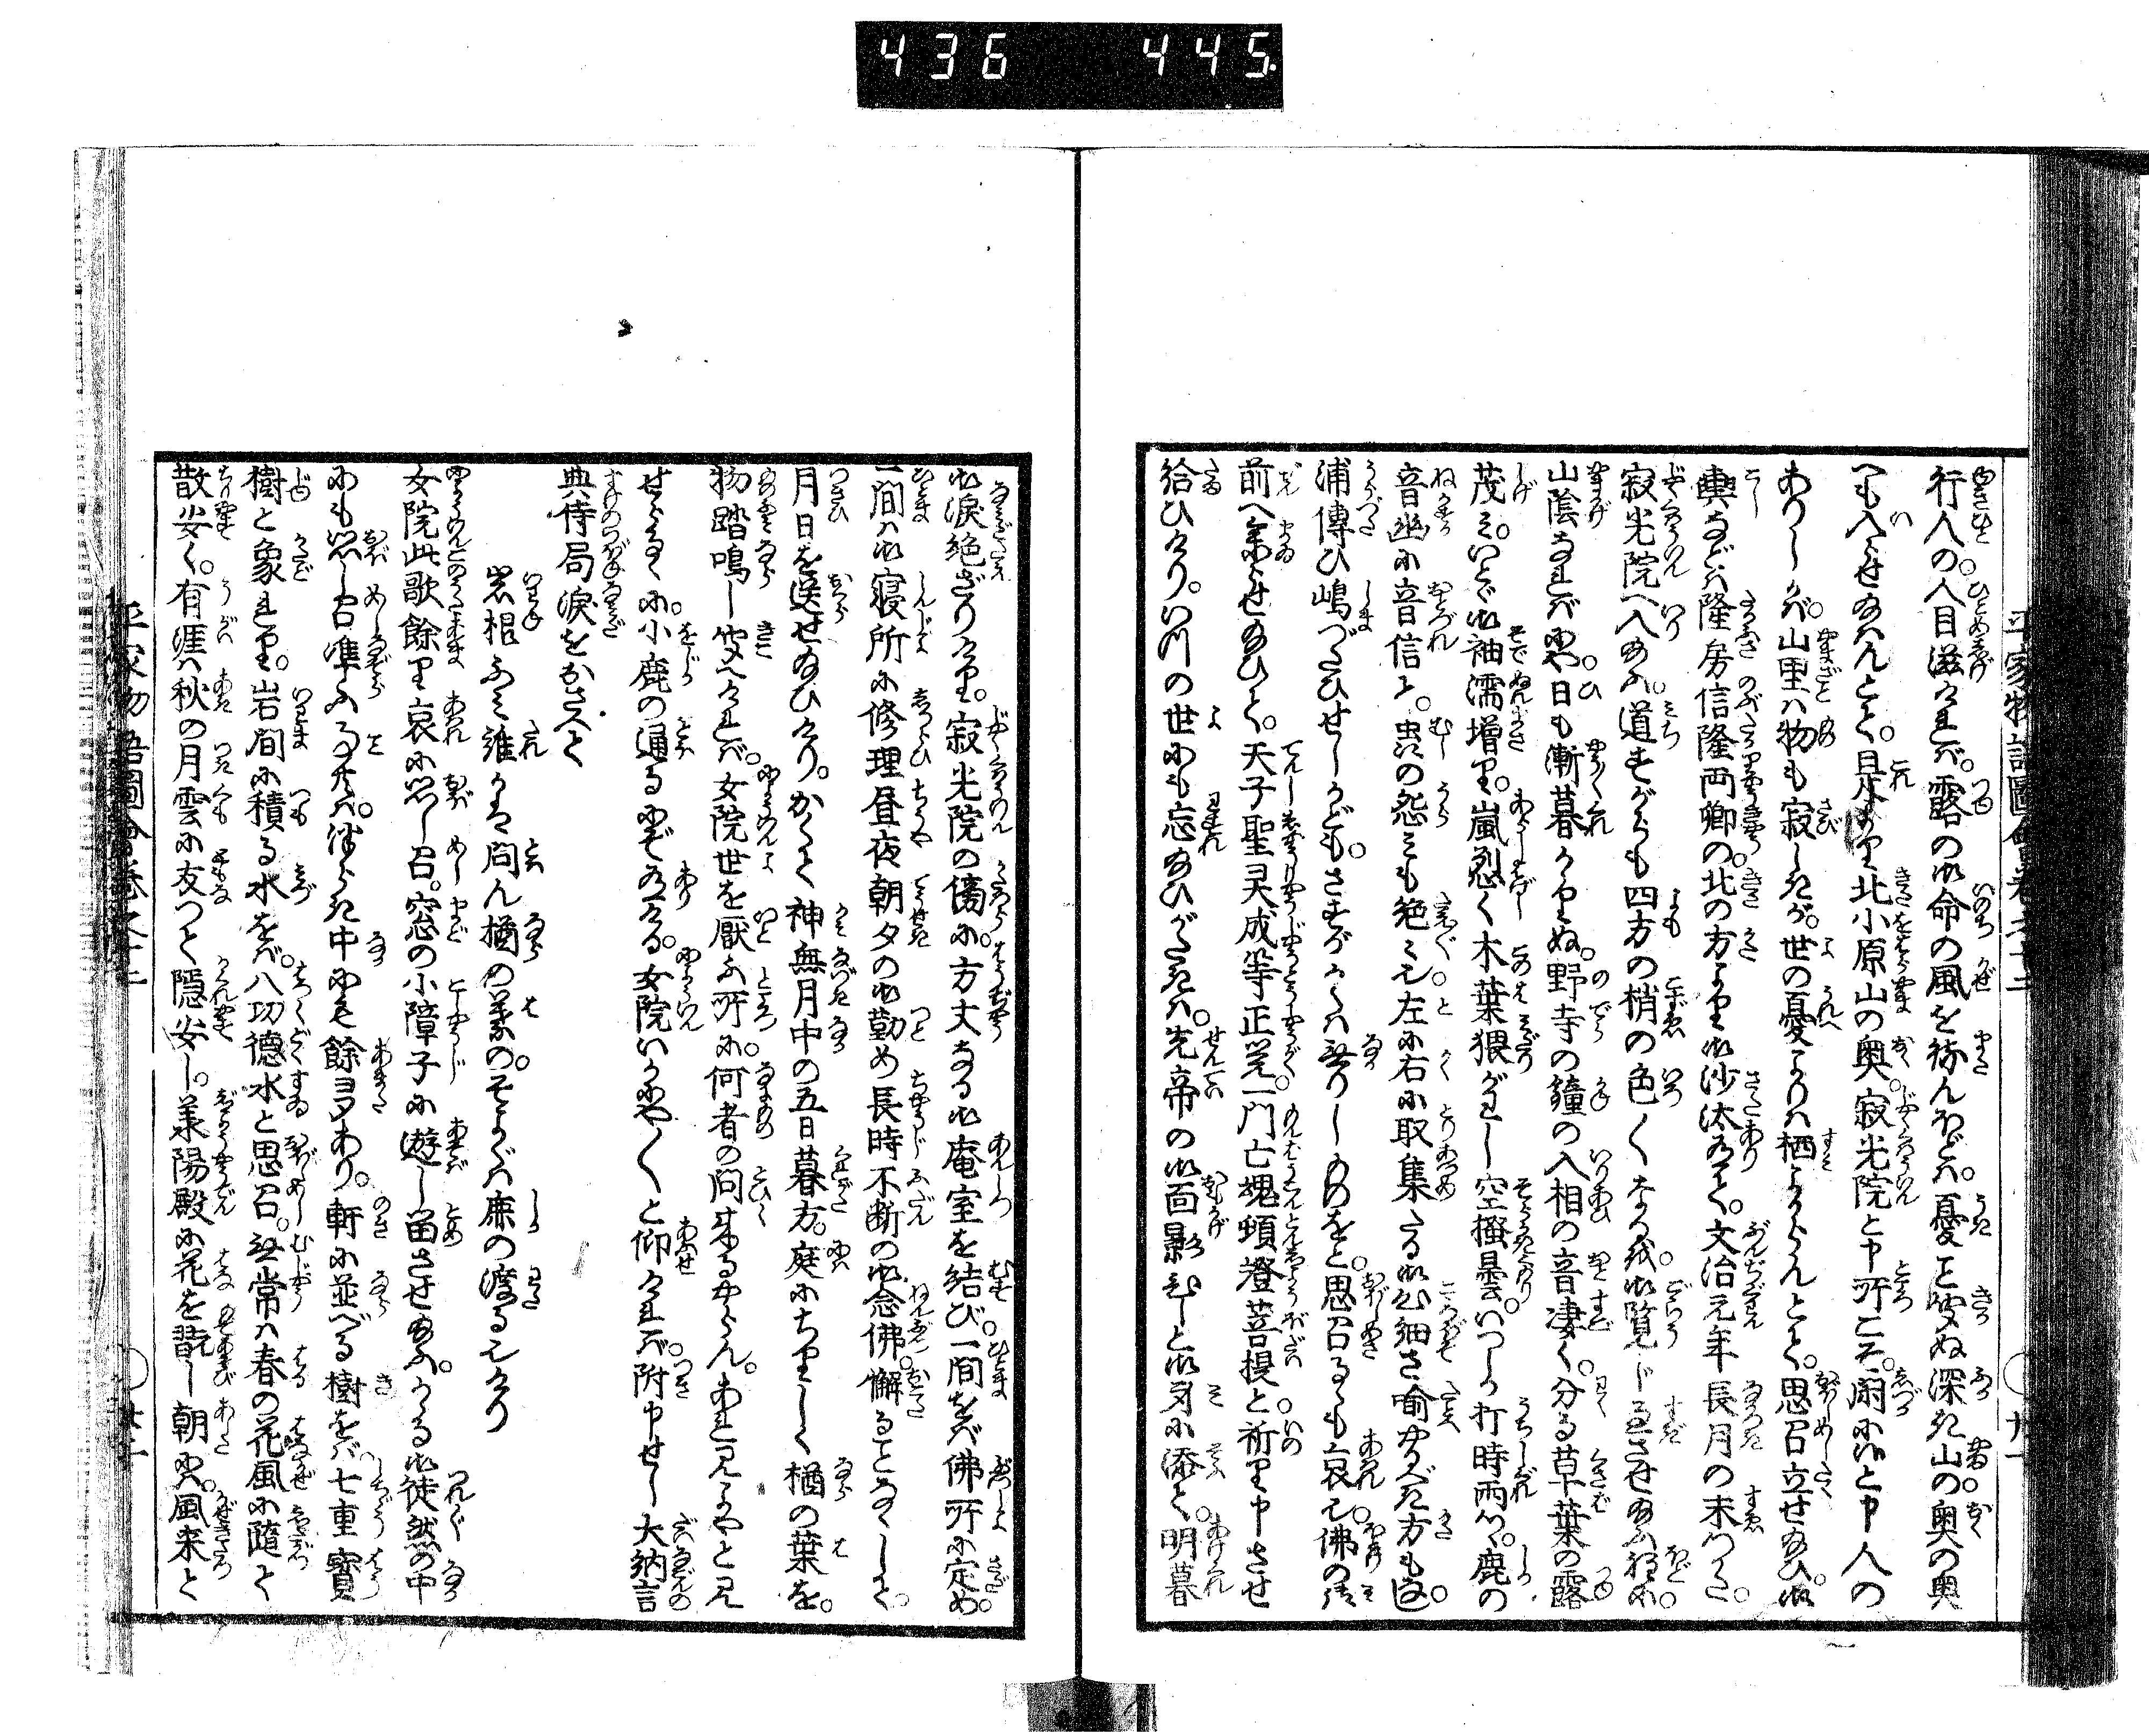 436 445
平家物語圖會巻之十二 廿一
行人の。人目滋ければ。露の御命の風を待んほどは。憂こと聞ぬ深き山の奥の奥
へも入らせ給はんとて。是より北小原山の奥。寂光院と申所こそ。閑にさふらへと申人の
ありしかば。山里は物も寂しきが。世の憂よりは栖よからんとて。思召立せ給ひ。御
輿などは隆房信隆両卿の。北の方より御沙汰ありて。文治元年長月の末つかた。
寂光院へ入給ふ。道すがらも四方の梢の色〳〵なるを。御覧じ過させ給ふ程に。
山陰なればにや。日も漸暮かゝりぬ。野寺の鐘の入相の音凄く。分る草葉の露
茂み。いとゞ御袖濡増り。嵐烈く木葉猥がはし空掻曇。いつしか打時雨つゝ。鹿の
音幽に音信て。虫の怨みも絶〳〵也。左に右に取集たる御心細さ喩やるべき方も
浦傳ひ嶋づたひせしかども。さすがかくは無りしものをと。思召るゝも哀也。佛の御
前へ参らせ給ひて。天子聖灵成等正覚。一門亡魂頓證菩提と。祈り申させ
給ひけり。いつの世にも忘給ひがたきは。先帝の御面影ひしと御身に添て。明暮
御涙絶ざりけり。寂光院の傍に。方丈なる御庵室を結び。一間をば佛所に定め。
一間は御寝所に修理昼夜朝夕の御勤め長時不断の御念佛。懈ることなくして。
月日を送せ給ひけり。かくて神無月中の五日暮方。庭にちりしく楢の葉を。
物踏鳴して聞へければ。女院世を厭ふ所に。何者の問来るやらん。あれ見よやと見
せらるゝに。小鹿の通るにぞありける。女院いかにや〳〵と仰ければ。附申せし大納言
典侍局涙をおさへて
岩根ふみ誰かは問ん楢の葉の。そよぐは鹿の渡る也けり
女院此歌餘り哀に思し召。窓の小障子に遊し留させ給ふ。かゝる御徒然の中
にも思し召准ふる事共は。つらき中にも餘多あり。軒に並べる樹をば七重寳
樹と象れり。岩間に積る水をば。八功徳水と思召。無常は春の花風に随て
散安く。有涯は秋の月雲に友つて隠安し。承陽殿に花を翫し朝には。風来て
平家物語圖會巻之十二 廿二